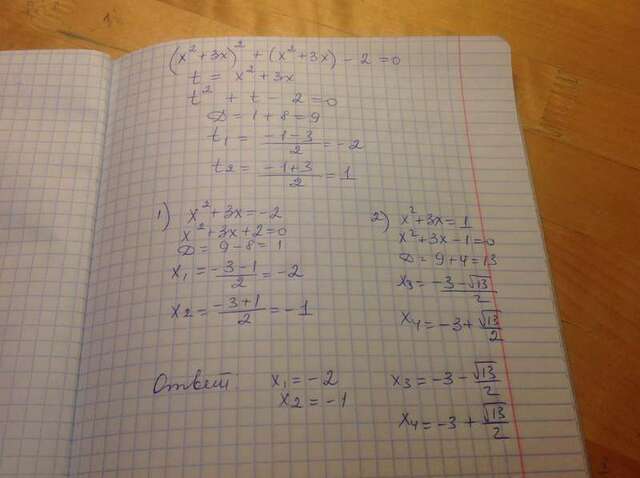 (x² + 3x)² + (x² + 3x) - 2 = 0
t = x² + 3x
t² + t - 2 = 0
D = 1 + 8 = 9
t₁ = (-1 - 3)/2 = -2
t₂ = (-1 + 3)/2 = 1
1) x² + 3x = -2
x² + 3x + 2 = 0
D = 9 - 8 = 1
x₁ = (-3 - 1)/2 = -2
x₂ = (-3 + 1)/2 = -1
2) x² + 3x = 1
x² + 3x - 1 = 0
D = 9 + 4 = 13
x₃ = (-3 - √13)/2
x₄ = -3 + √13/2
Ответ
x₁ = -2
x₂ = -1
x₃ = -3 - √13/2
x₄ = -3 + √13/2